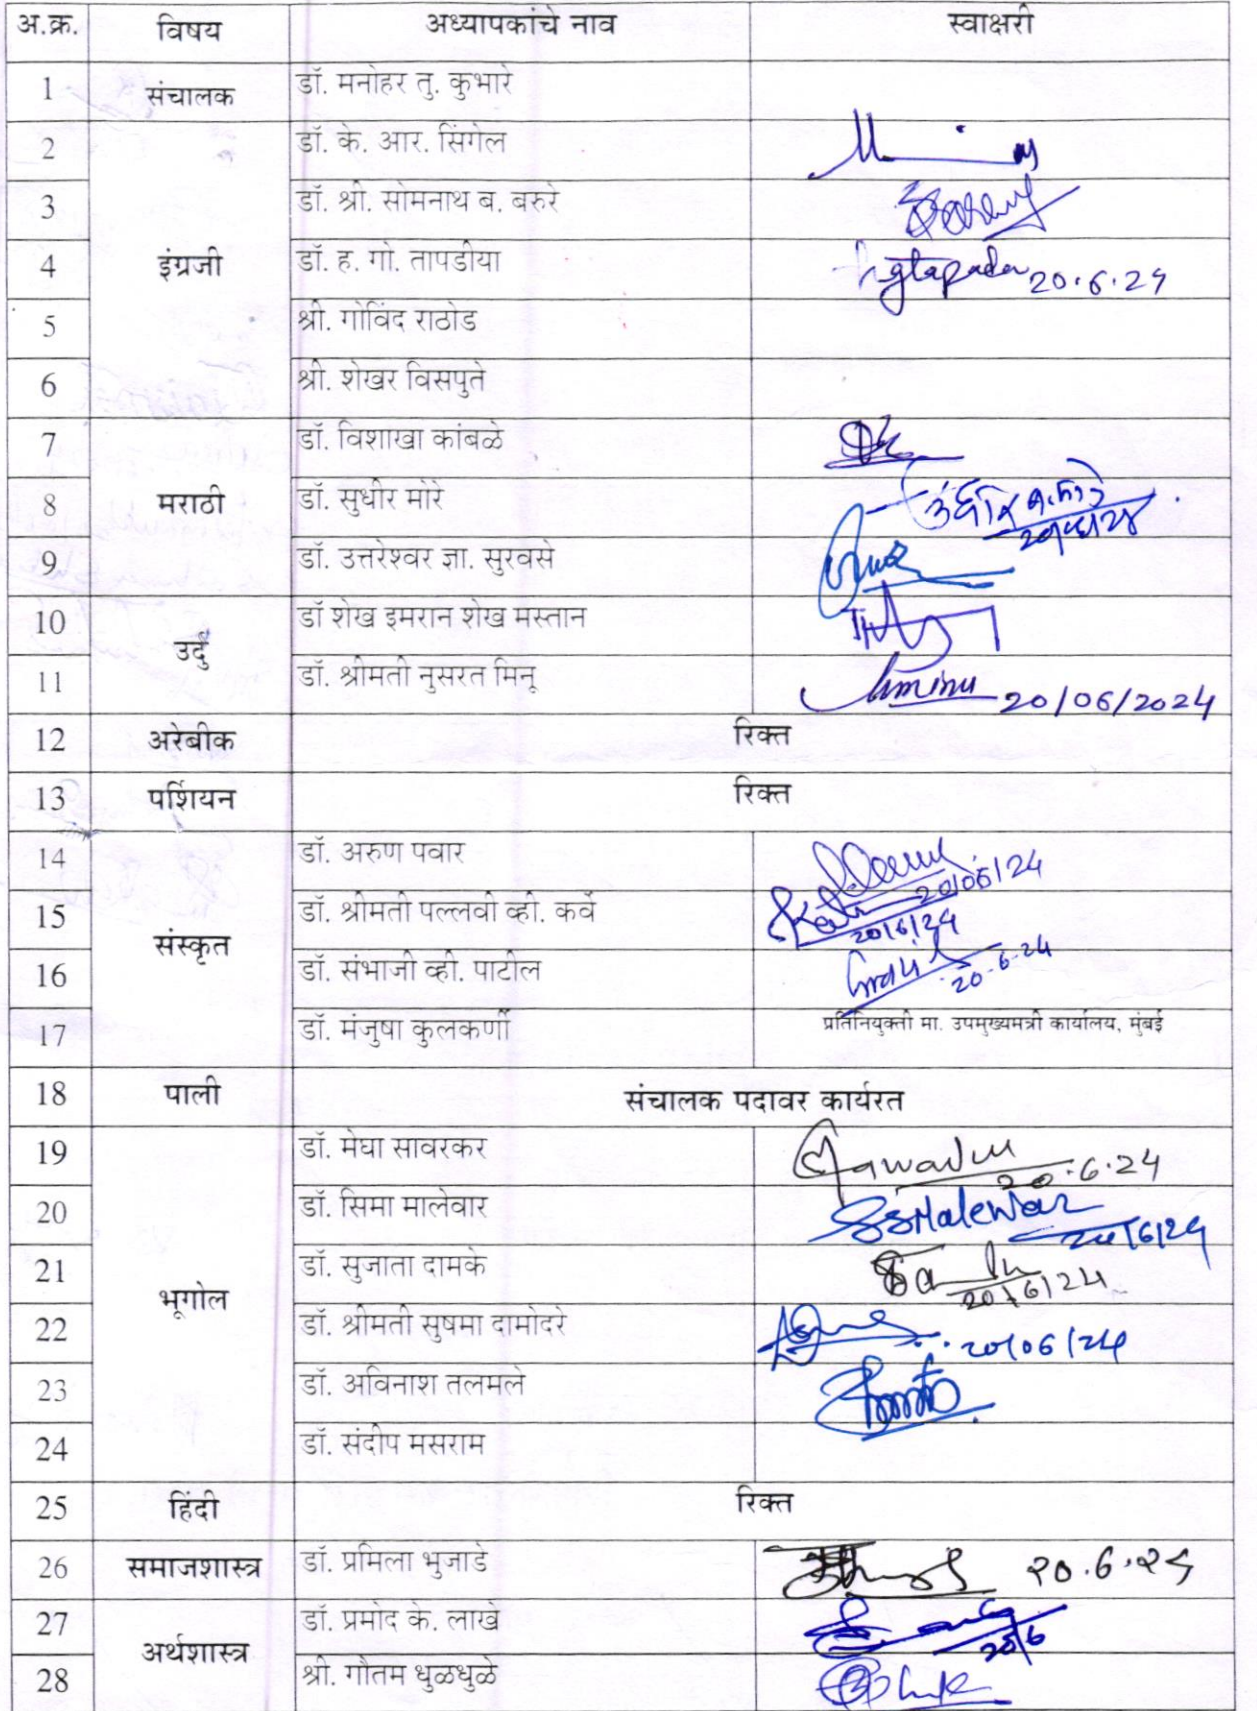 अ.क्र. विषय अध्यापकांचे नाव स्वाक्षरी
1 संचालक डॉ. मनोहर तु. कुभारे
2 डॉ. के. आर. सिंगेल
3 डॉ. श्री. सोमनाथ ब. बरुरे
4 इंग्रजी डॉ. ह. गो. तापडीया hgtapadia 20.6.24
5 श्री. गोविंद राठोड
6 श्री. शेखर विसपुते
7 डॉ. विशाखा कांबळे
8 मराठी डॉ. सुधीर मोरे
9 डॉ. उत्तरेश्वर ज्ञा. सुरवसे
10 डॉ शेख इमरान शेख मस्तान
उर्दु
11 डॉ. श्रीमती नुसरत मिनू 20/06/2024
12 अरेबीक रिक्त
13 पर्शियन रिक्त
14 डॉ. अरुण पवार 20/06/24
15 डॉ. श्रीमती पल्लवी व्ही. कर्वे 20/6/24
संस्कृत
16 डॉ. संभाजी व्ही. पाटील 20-6-24
17 डॉ. मंजुषा कुलकर्णी प्रतिनियुक्ती मा. उपमुख्यमंत्री कार्यालय, मुंबई
18 पाली संचालक पदावर कार्यरत
19 डॉ. मेघा सावरकर 20.6.24
20 डॉ. सिमा मालेवार SSMalewar 20/6/24
21 डॉ. सुजाता दामके 20/6/24
भूगोल
22 डॉ. श्रीमती सुषमा दामोदरे 20/06/24
23 डॉ. अविनाश तलमले
24 डॉ. संदीप मसराम
25 हिंदी रिक्त
26 समाजशास्त्र डॉ. प्रमिला भुजाडे २०.6.२४
27 डॉ. प्रमोद के. लाखे 20/6
अर्थशास्त्र
28 श्री. गौतम धुळधुळे